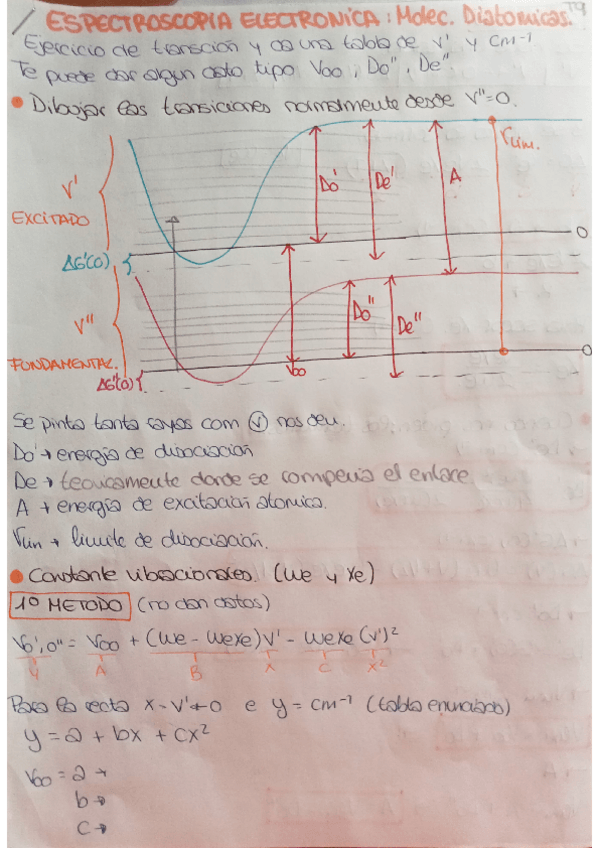 ESPECTROSCOPIA ELECTRONICA: Molec. Diatomicas.
Ejercicio de transición y da una tabla de v' y cm-1
Te puede dar algun dato tipo V00, Do'', De''
• Dibujar las transiciones normalmente desde V''=0.
Vlim.
V'
EXCITADO
Do'
De'
A
0
ΔG'(0)
V''
Do''
De''
FUNDAMENTAL.
V00
0
ΔG''(0)
Se pinta tanta rayas com V nos den.
Do' → energía de disociación
De → teoricamente donde se comperia el enlace
A → energía de excitación atomica.
Vlim → limite de disociación.
• Constante vibracionales. (We y Xe)
1º METODO (no dan datos)
V0',0'' = V00 + (We - WeXe)V' - WeXe (V')²
Y A B X C X²
Para la recta x - V' ≠ 0 e y = cm-1 (tabla enunciado)
y = a + bx + cx²
V00 = a →
b →
c →